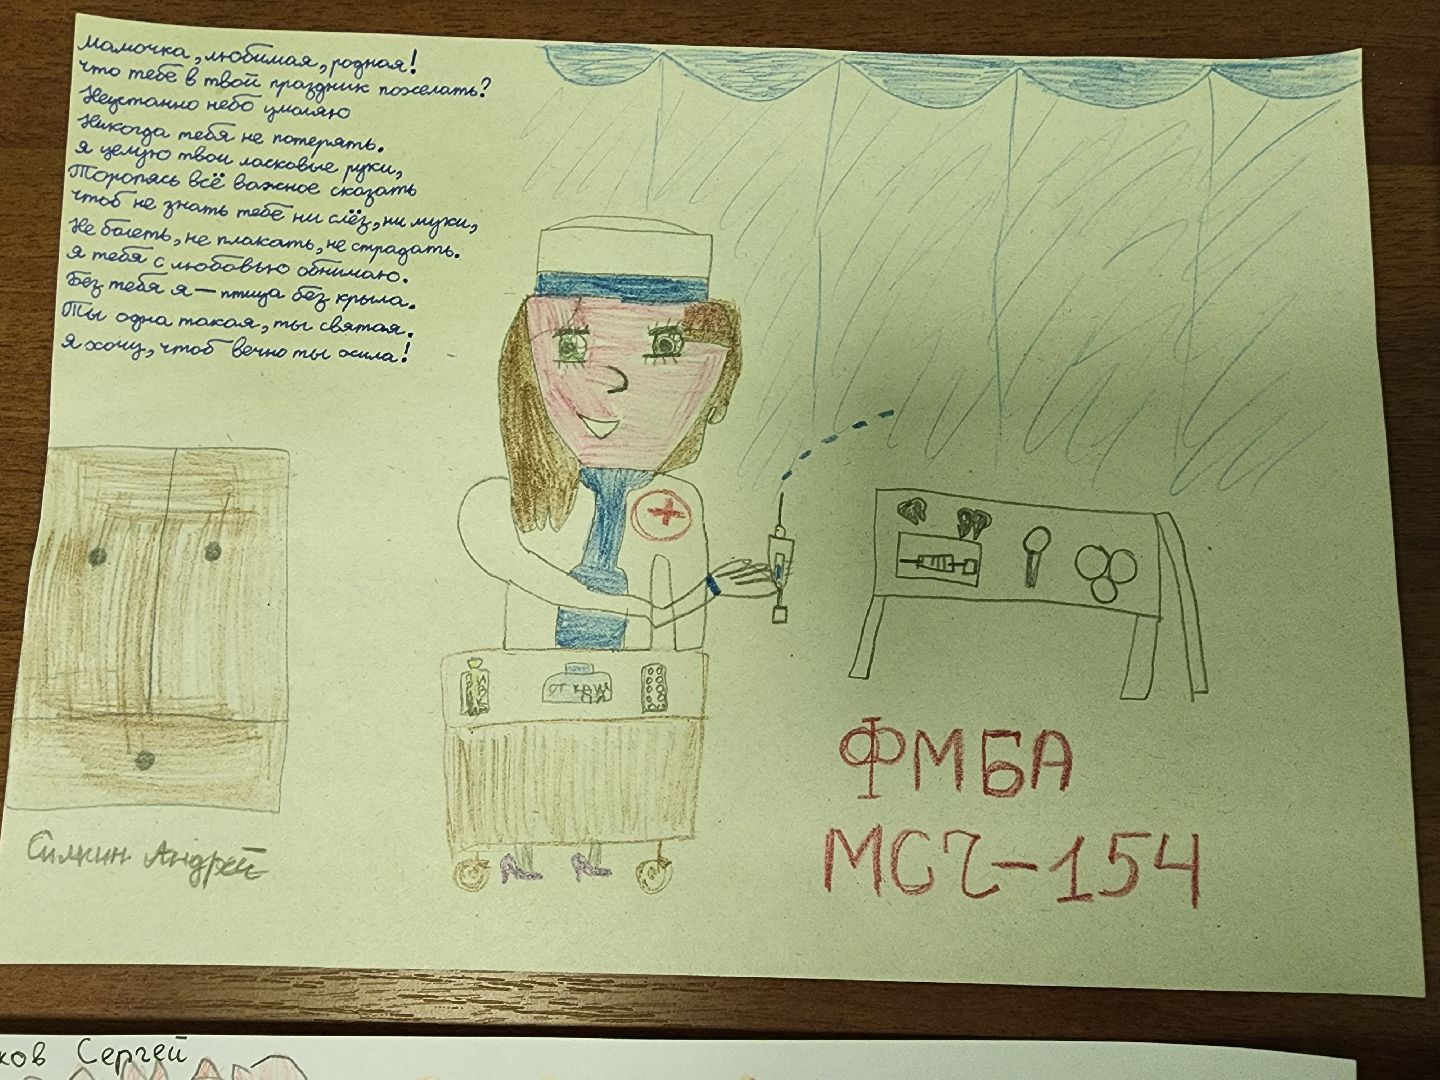 Мамочка, любимая, родная!
что тебе в твой праздник пожелать?
Неустанно небо умоляю
Никогда тебя не потерять.
я целую твои ласковые руки,
Торопясь всё важное сказать
чтоб не знать тебе ни слёз, ни муки,
Не болеть, не плакать, не страдать.
я тебя с любовью обнимаю.
Без тебя я — птица без крыла.
Ты одна такая, ты святая.
я хочу, чтоб вечно ты жила!
от
ФМБА
МСЧ-154
Силкин Андрей
ков Сергей